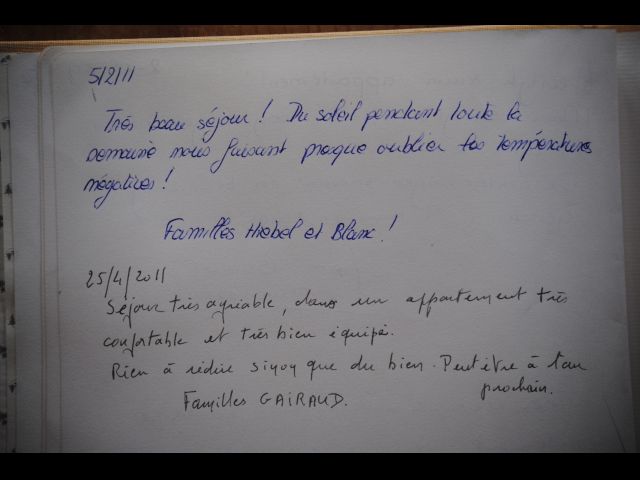 5/2/11
Très beau séjour ! Du soleil pendant toute la
semaine nous faisant presque oublier les températures
négatives !
Familles Hrebel et Blanc !
25/4/2011
Séjour très agréable, dans un appartement très
confortable et très bien équipé.
Rien à redire sinon que du bien. Peut être à l'an
prochain.
Familles GAIRAUD.